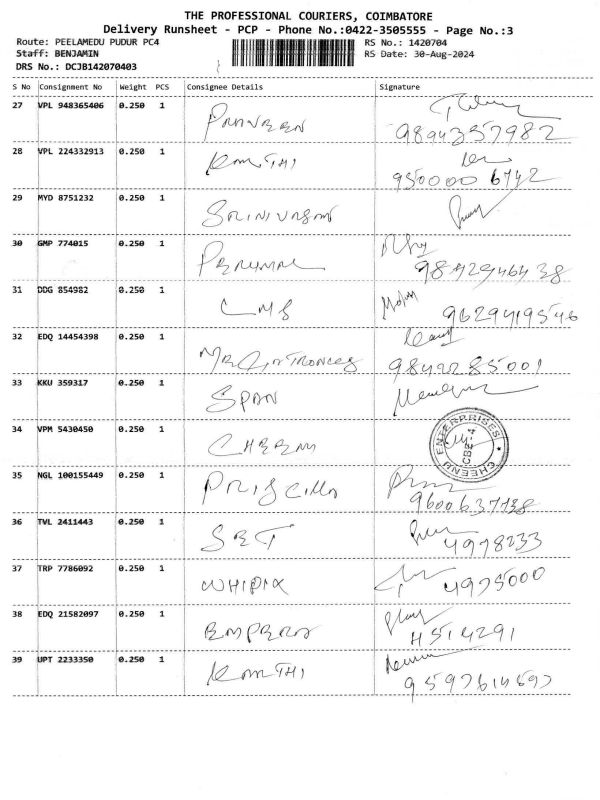 THE PROFESSIONAL COURIERS, COIMBATORE
Delivery Runsheet - PCP - Phone No.:0422-3505555 - Page No.:3
Route: PEELAMEDU PUDUR PC4 RS No.: 1420704
Staff: BENJAMIN RS Date: 30-Aug-2024
DRS No.: DCJB142070403
S No Consignment No Weight PCS Consignee Details Signature
27 VPL 948365406 0.250 1 PRAVEEN
9894357982
28 VPL 224332913 0.250 1 KEERTHI
950000 6742
29 MYD 8751232 0.250 1 SRINIVASAN
30 GMP 774015 0.250 1 PERUMAL
9842946438
31 DDG 854982 0.250 1 CMS
9629419546
32 EDQ 14454398 0.250 1
9842285001
33 KKU 359317 0.250 1 SPAN
34 VPM 5430450 0.250 1 CHEENU
CHEENU ENTERPRISES
CBE-4
35 NGL 100155449 0.250 1 PRISCILLA
9600637138
36 TVL 2411443 0.250 1 SET
4978233
37 TRP 7786092 0.250 1 WHIPIX
4975000
38 EDQ 21582097 0.250 1 EMPERO
4514291
39 UPT 2233350 0.250 1 KEERTHI